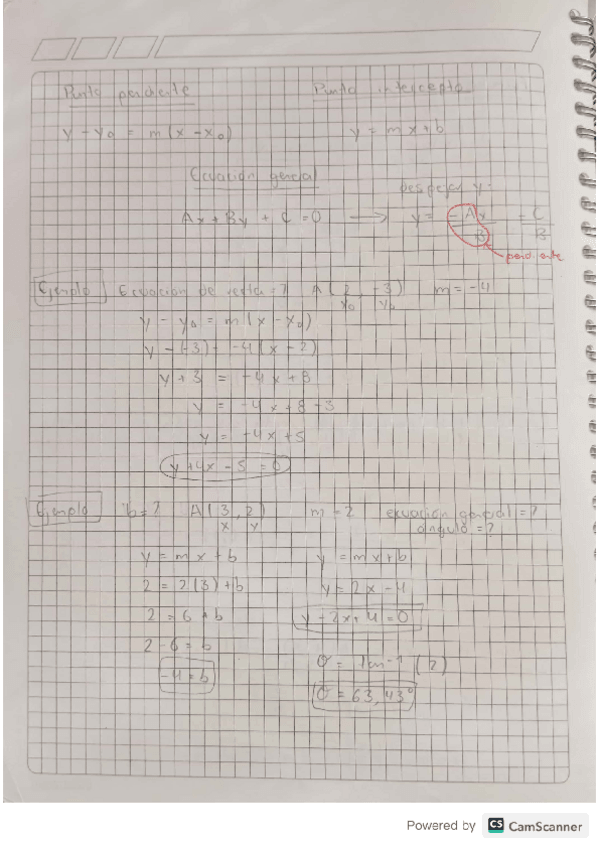 Punto pendiente
Punto intercepto
y - y₀ = m(x - x₀)
y = mx + b
Ecuación general
Despejar y:
Ax + By + C = 0 → y = -Ax/B - C/B
pendiente
Ejemplo Ecuación de recta = ? A(2, -3) m = -4
x₀ y₀
y - y₀ = m(x - x₀)
y - (-3) = -4(x - 2)
y + 3 = -4x + 8
y = -4x + 8 - 3
y = -4x + 5
y + 4x - 5 = 0
Ejemplo b = ? A(3, 2) m = 2 ecuación general = ?
x y
ángulo = ?
y = mx + b
2 = 2(3) + b
2 = 6 + b
2 - 6 = b
-4 = b
y = mx + b
y = 2x - 4
y - 2x + 4 = 0
θ = Tan⁻¹ (2)
θ = 63,43°
Powered by CS CamScanner